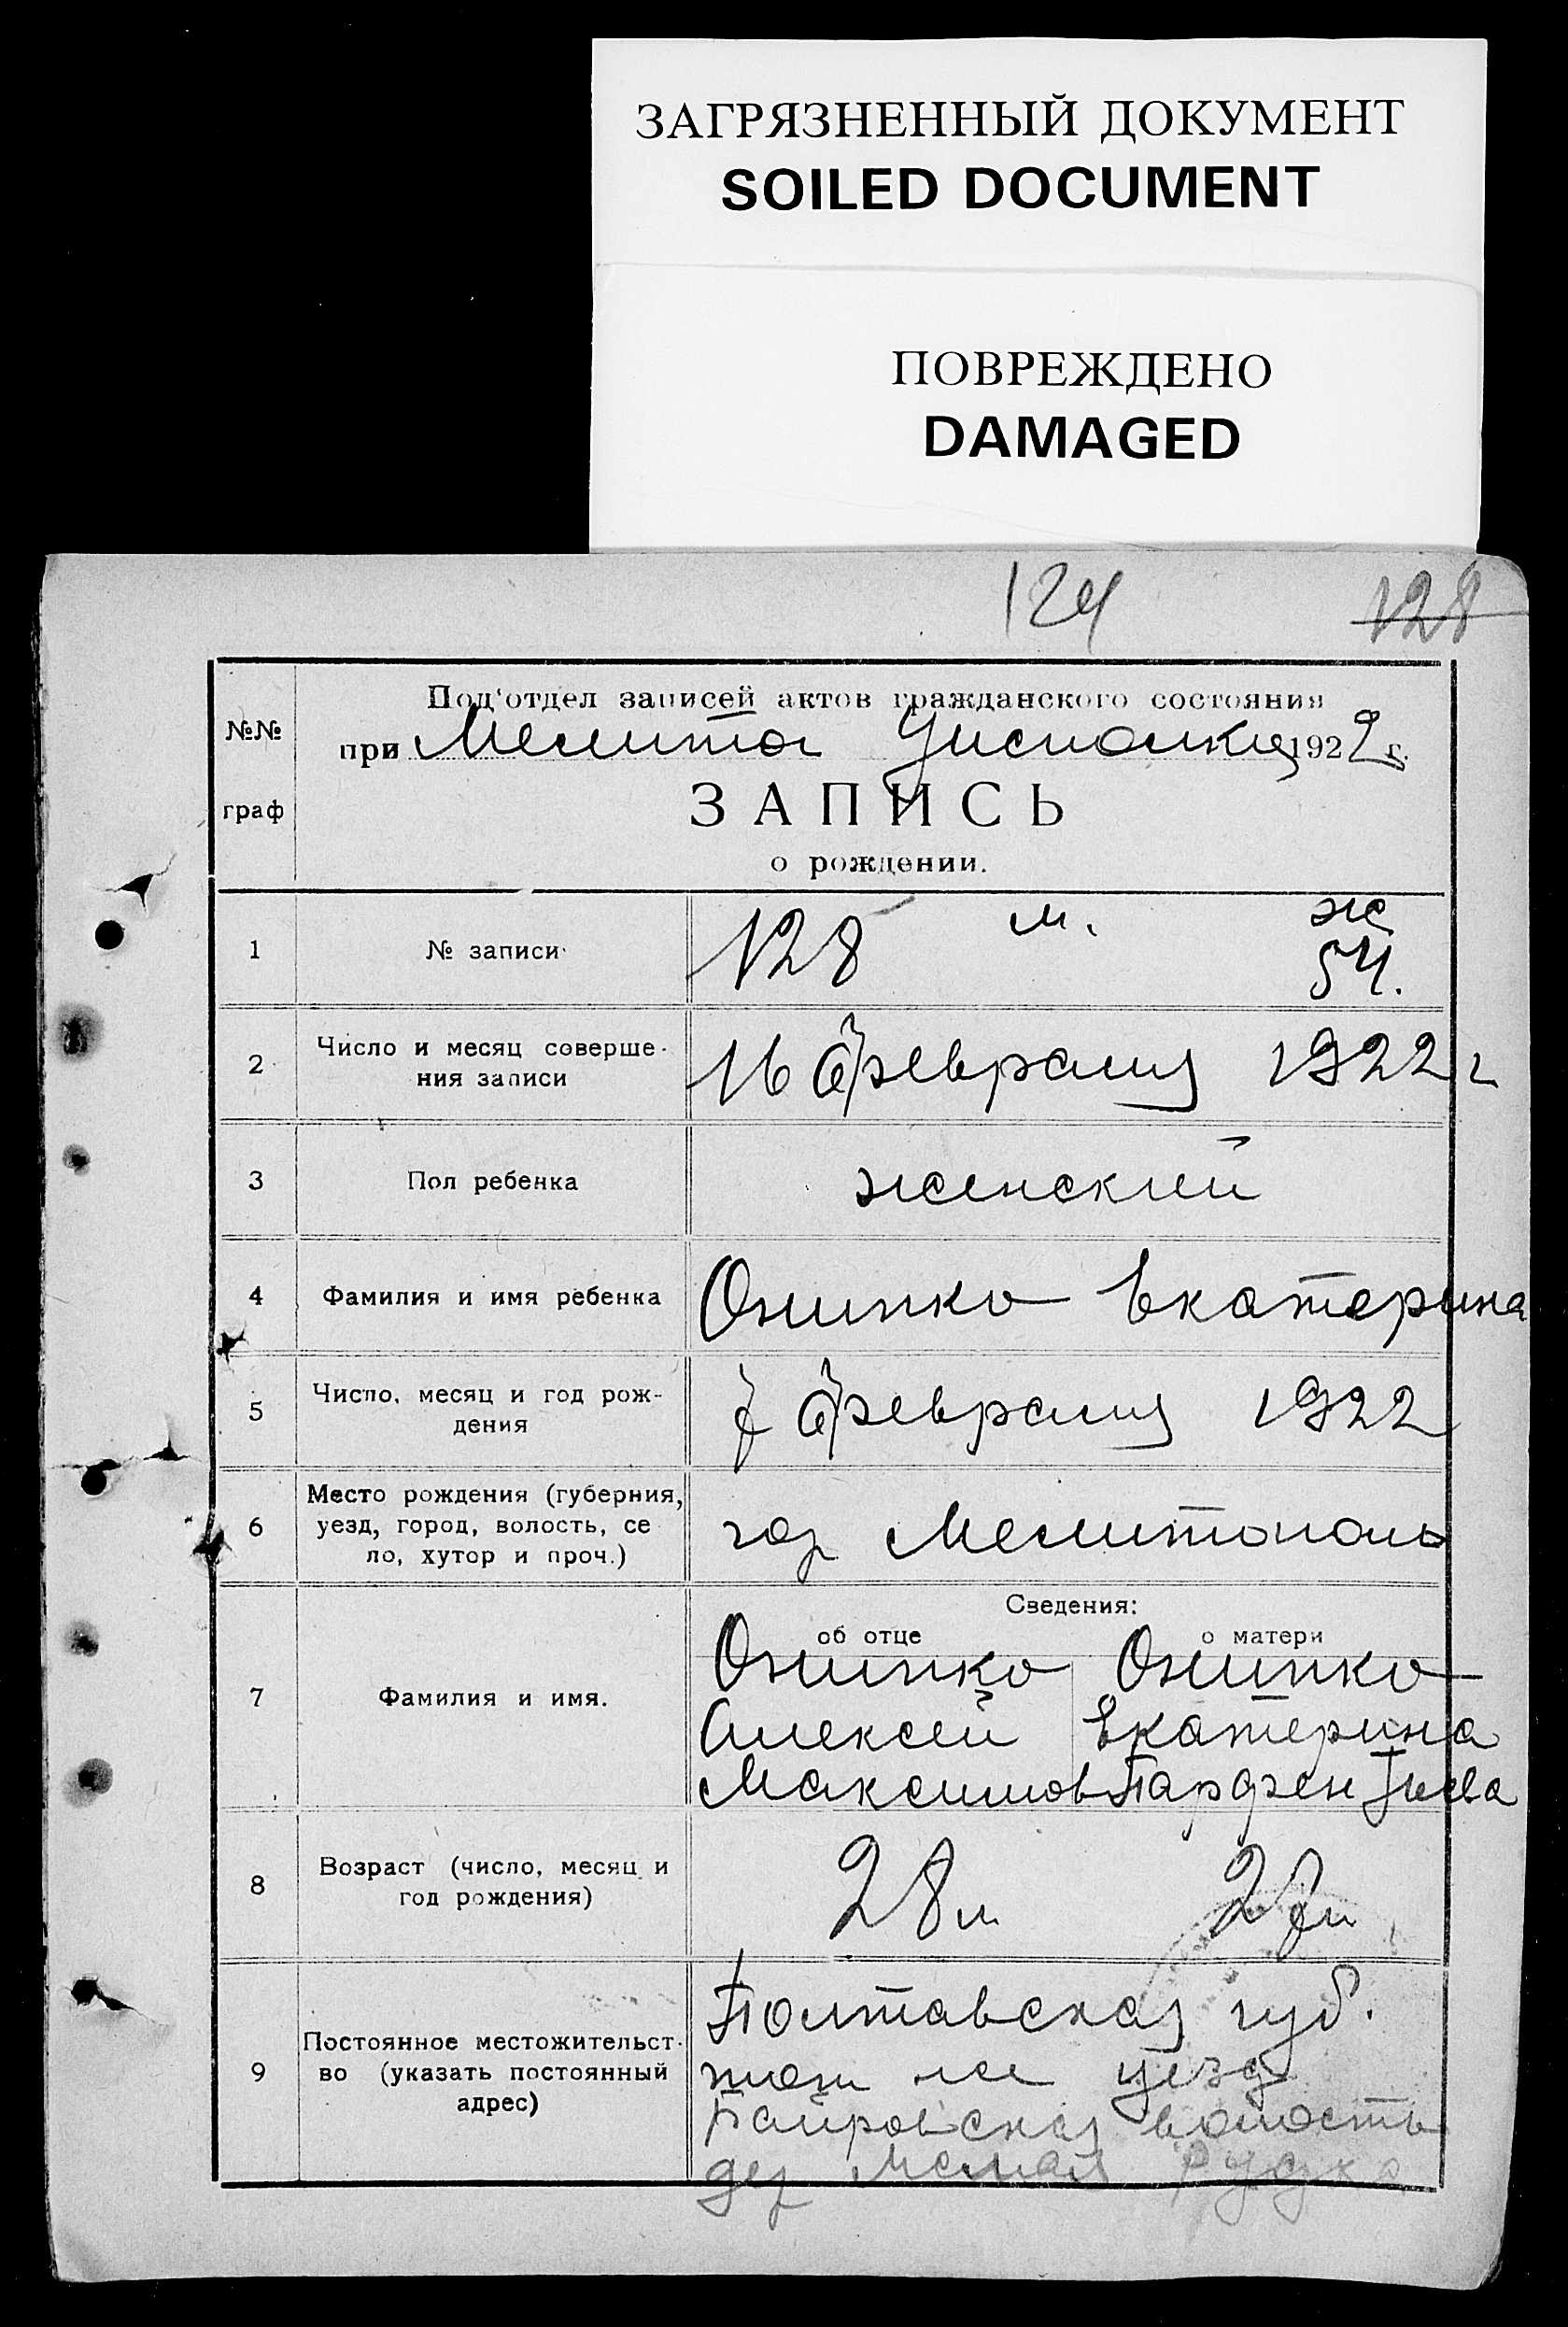 ЗАГРЯЗНЕННЫЙ ДОКУМЕНТ
SOILED DOCUMENT
ПОВРЕЖДЕНО
DAMAGED
124 128
№№ граф
Под‘отдел записей актов гражданского состояния
при Мелитоп Уисполкоме 1922 г.
ЗАПИСЬ
о рождении.
1 № записи 128 м. ж 54.
2 Число и месяц соверше-
ния записи 16 февраля 1922 г
3 Пол ребенка женский
4 Фамилия и имя ребенка Онипко Екатерина
5 Число, месяц и год рож-
дения 7 февраля 1922
6 Место рождения (губерния,
уезд, город, волость, се
ло, хутор и проч.) гор Мелитополь
Сведения:
об отце о матери
7 Фамилия и имя. Онипко Онипко
Алексей Екатерина
Максимов Парфентьева
8 Возраст (число, месяц и
год рождения) 28 л 27 л
9 Постоянное местожительст-
во (указать постоянный
адрес) Полтавская губ.
того же уезд
волость
дер Малая Рудка